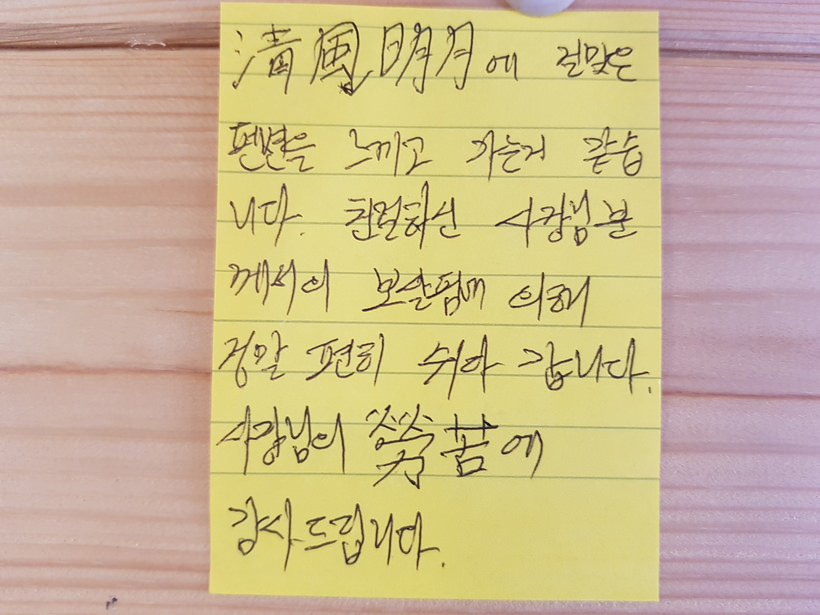 清風明月에 걸맞은
편변을 느끼고 가는거 같습
니다. 친절하신 사장님분
께서의 보살핌에 의해
정말 편히 쉬다 갑니다.
사장님의 勞苦에
감사드립니다.